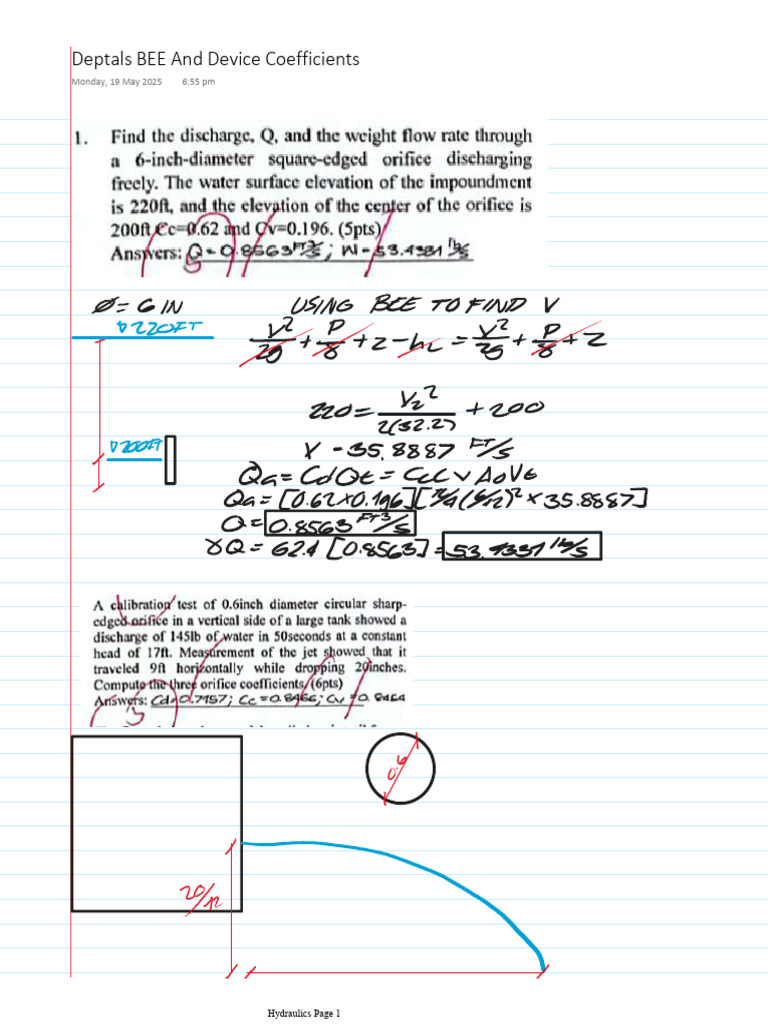 Deptals BEE And Device Coefficients
Monday, 19 May 2025 6:55 pm
1. Find the discharge, Q, and the weight flow rate through
a 6-inch-diameter square-edged orifice discharging
freely. The water surface elevation of the impoundment
is 220ft, and the elevation of the center of the orifice is
200ft Cc=0.62 and Cv=0.196. (5pts)
Answers: Q = 0.8563 FT³/S ; W = 53.4331 lb/s
Ø = 6 IN USING BEE TO FIND V
▽220FT
V²/2g + P/γ + Z - hL = V²/2g + P/γ + Z
220 = V₂²/2(32.2) + 200
▽200FT
V = 35.8887 FT/S
Qa = CdQt = CcCv AoVt
Qa = [0.62 x 0.196][π/4(6/12)² x 35.8887]
Q = 0.8563 FT3/S
γQ = 62.4 [0.8563] = 53.4331 lb/s
A calibration test of 0.6inch diameter circular sharp-
edged orifice in a vertical side of a large tank showed a
discharge of 145lb of water in 50seconds at a constant
head of 17ft. Measurement of the jet showed that it
traveled 9ft horizontally while dropping 20inches.
Compute the three orifice coefficients (6pts)
Answers: Cd = 0.7157; Cc = 0.8466; Cv = 0.8454
0.6
20/12
Hydraulics Page 1